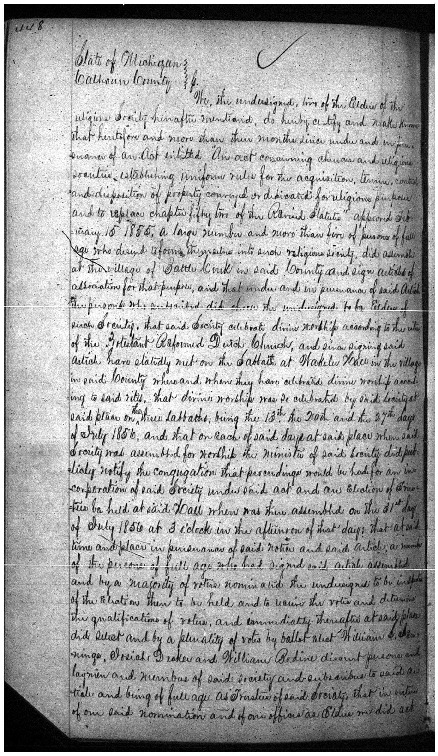 448
State of Michigan
Calhoun County } ss.
We, the undersigned, two of the Elders of the
religious Society hereafter mentioned, do hereby certify and make known
that heretofore and more than three months since under and in pur-
suance of an Act entitled An act concerning churches and religious
societies, establishing uniform rules for the acquisition, tenure, control
and disposition of property conveyed or dedicated for religious purposes
and to replace chapter fifty two of the Revised Statutes approved Feb-
ruary 15 1855, a large number and more than five of persons of full
age who desired to form themselves into such religious society, did assemble
at the village of Battle Creek in said County and sign Articles of
association for that purpose, and that under and in pursuance of said Article
the persons who subscribed did the undersigned to be Elders of
such Society, that said Society celebrate divine worship according to the rites
of the Protestant Reformed Dutch Church, and since signing said
Article have statedly met on the Sabbath at Hall in the village
in said County where and where they have celebrated divine worship accord-
ing to said rites, that divine worship was so celebrated by said Society at
said place on the three Sabbaths, being the 13th the 20th and the 27th days
of July 1856, and that on each of said days at said place when said
Society was assembled for worship the minister of said society did pub-
licly notify the congregation that proceedings would be had for an in-
corporation of said Society under said act and an Election of Trus-
tees be held at said Hall where was then assembled on the 31st day
of July 1856 at 3 o'clock in the afternoon of that day; that at said
time and place in pursuance of said notice and said Article, a number
of the persons of full age who had signed said article assembled
and by a majority of votes nominated the undersigned to be inspectors
of the Election then to be held and to receive the votes and determine
the qualifications of voters, and immediately thereafter at said place
did select and by a plurality of votes by ballot elect William
Josiah and William Bodine discreet persons and
laymen and members of said society and subscribers to said ar-
ticle and being of full age as Trustees of said Society, that in virtue
of our said nomination and of our offices as Elders we did act